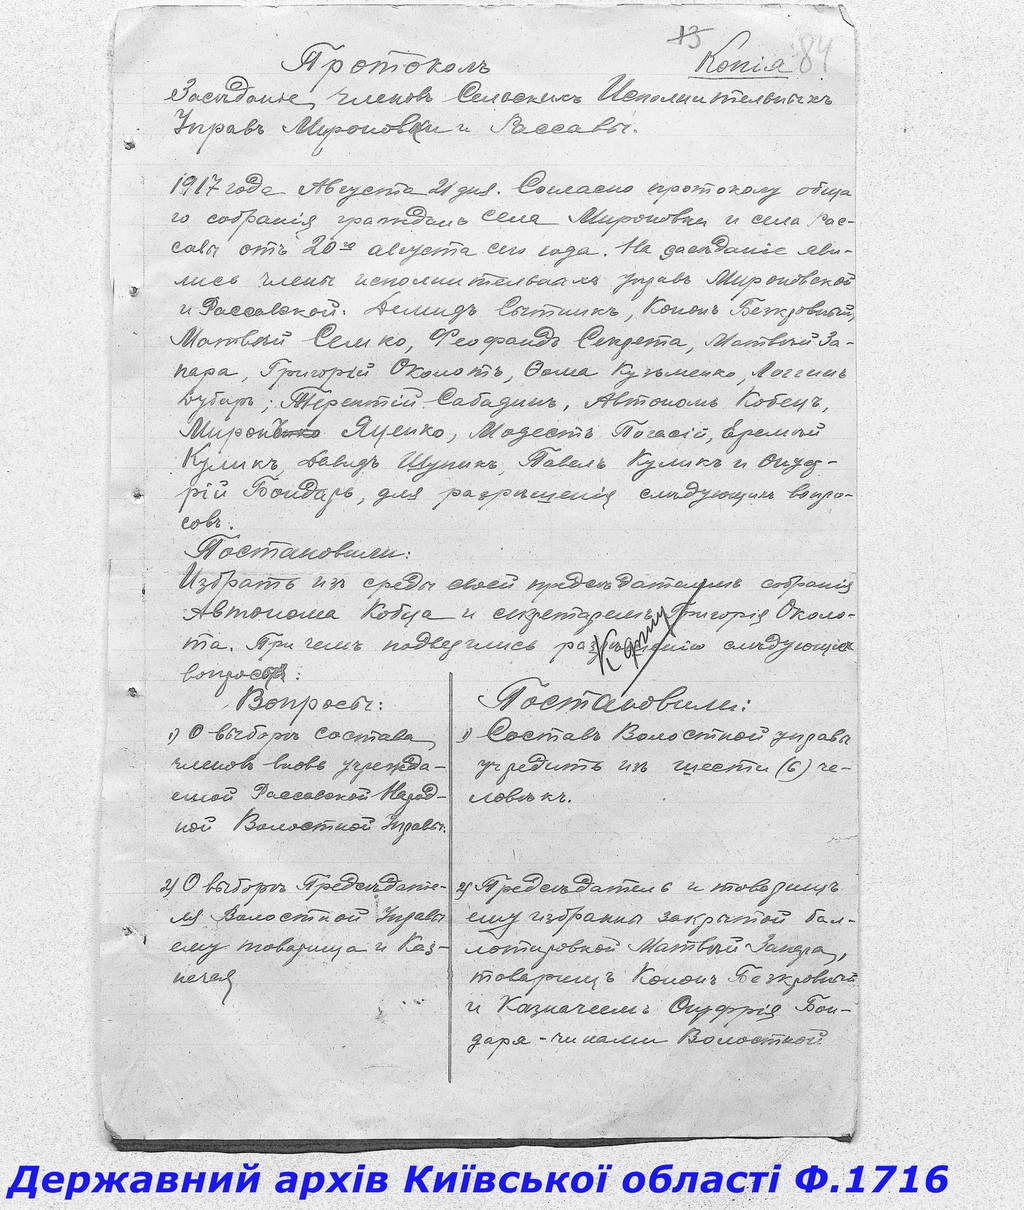 13
84
Копія
Протоколъ
Засѣданіе членовъ Сельскихъ Исполнительныхъ
Управъ Мироновки и Рассавы.
1917 года Августа 21 дня. Согласно протоколу обща
го собранія гражданъ села Мироновки и села Рас-
савы отъ 20го августа сего года. На засѣданіе яви-
лись члены исполнительныхъ управъ Мироновской
и Рассавской: Демидъ Сытникъ, Кононъ Безкровный,
Матвѣй Семко, Феофанъ Секрета, Матвѣй За-
пара, Григорій Околотъ, Ѳома Кузьменко, Логгинъ
Дубарь; Терентій Сабадинъ, Автономъ Кобецъ,
Миронъ Яценко, Модестъ Погасій, Еремѣй
Куликъ, Давидъ Щупикъ, Павелъ Куликъ и Онуф-
рій Бондарь, для разрѣшенія слѣдующихъ вопро-
совъ.
Постановили:
Избрать изъ среды своей предсѣдателемъ собранія
Автонома Кобца и секретаремъ Григорія Около-
та. При чемъ подверглись разрѣшенію слѣдующіе
вопросы:
К дѣлу
Вопросы:
1) О выборѣ состава
членовъ вновь учрежда-
емой Рассавской Народ-
ной Волостной Управы.
2) О выборѣ Предсѣдате-
ля Волостной Управы
ему товарища и Каз-
начея
Постановили:
1) Составъ Волостной управы
учредить изъ шести (6) че-
ловѣкъ.
2) Предсѣдатель и товарищъ
ему избраны закрытой бал-
лотировкой Матвѣй Запара,
товарищъ Кононъ Безкровный
и Казначеемъ Онуфрія Бон-
даря - членами Волостной
Державний архів Київської області Ф.1716